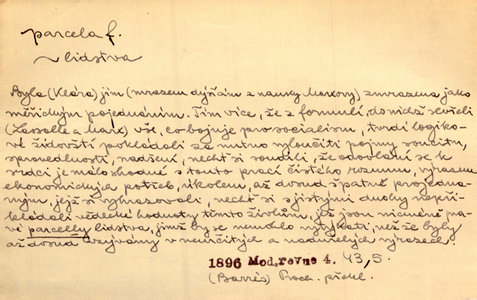 parcela f.
~ lidstva
Byla (Klára) jím (mrazem dýšícím z nauky Marxovy) zmrazena jako
měřickým pojednáním. Tím více, že z formulí, do nichž sevřeli
(Lassalle a Marx) vše, co bojuje pro socialism, tvrdí logiko-
vé židovští pokládali za nutno vyloučiti pojmy soucitu,
spravedlnosti, nadšení, nechť si soudili, že odvolání se k
srdci je málo shodné s touto prací čistého rozumu, výrazem
ekonomických potřeb, úkolem, až dosud špatně projedna-
ným, jejž si vyhrazovali, nechť si s jistými duchy nepři-
kládali vědecké hodnoty těmto živlům, již jsou nicméně pra-
vé parcelly lidstva, jimž by se nemohlo vytýkati, než že byly
až dosud vzývány v neurčitých a nadutých výrazech.
1896 Mod. revue 4. 43, 5.
(Barrès) Proch. překl.